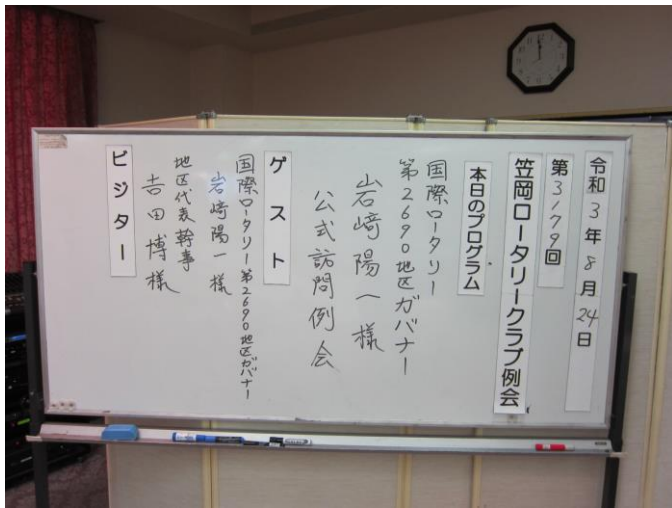 令和3年8月24日
第3179回
笠岡ロータリークラブ例会
本日のプログラム
国際ロータリー
第2690地区ガバナー
岩﨑陽一様
公式訪問例会
ゲスト
国際ロータリー第2690地区ガバナー
岩﨑陽一様
地区代表幹事
吉田博様
ビジター